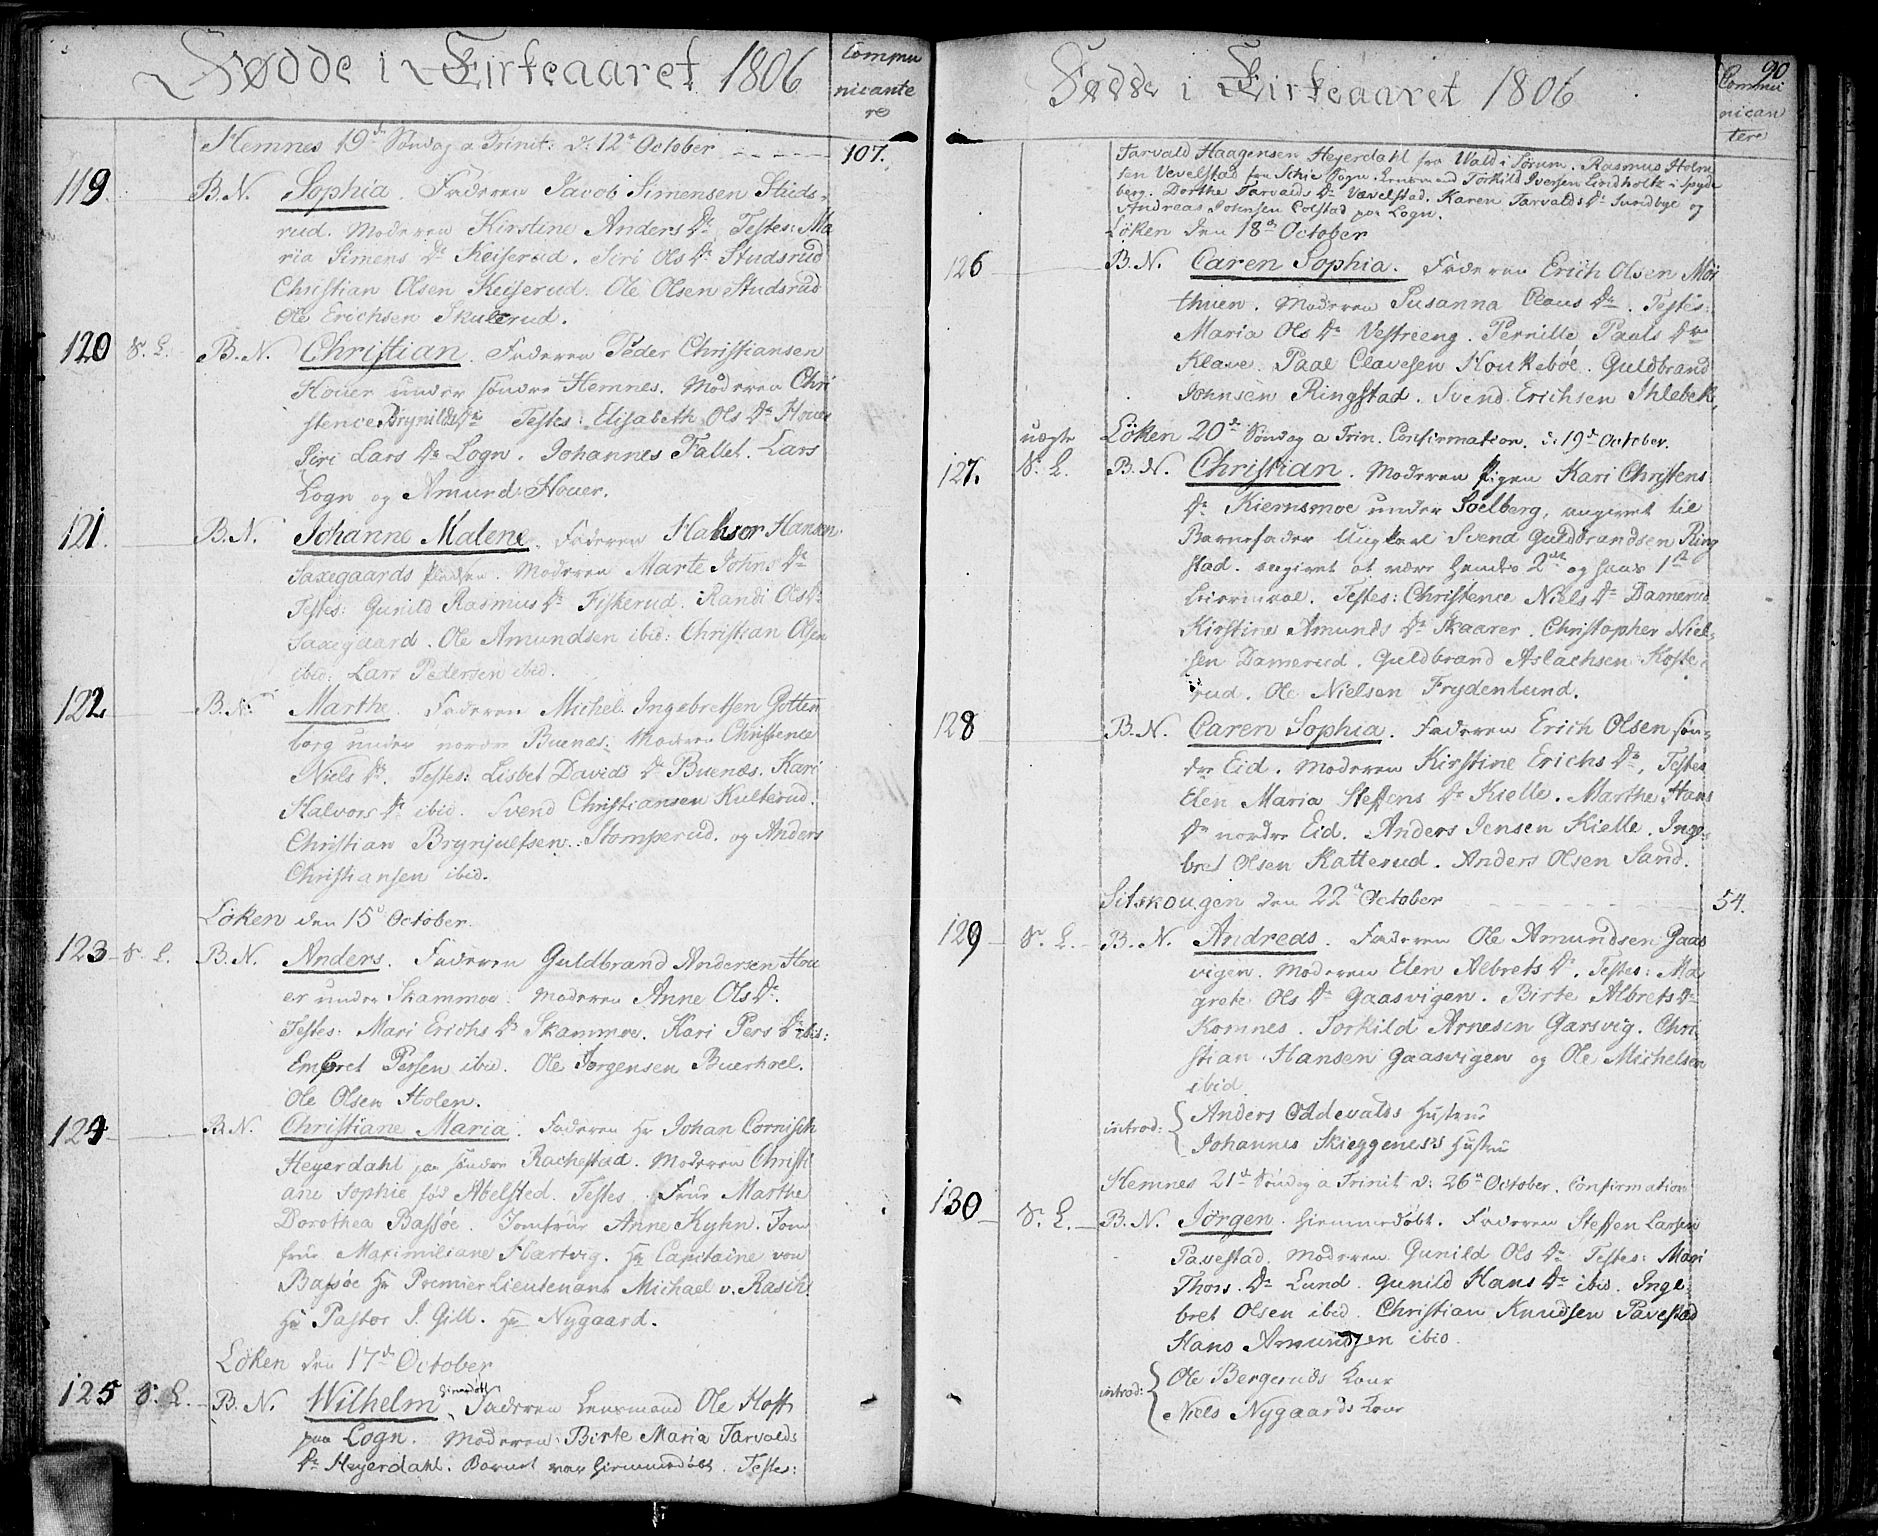 Fødde i Kirkeaaret 1806
Commu
nicante
re
Hemnes 19de Søndag a Trinit: d: 12te October
107.
119.
B.N. Sophia. Faderen Jacob Simensen Studs-
rud. Moderen Kirstine Anders Dr. Testes: Ma
ria Simens Dr Keiserud. Siri Ols Dr Studsrud
Christian Olsen Keiserud. Ole Olsen Studsrud
Ole Erichsen Skullerud.
120 S. L. B.N. Christian. Faderen Peder Christiansen
Houer under søndre Hemnes. Moderen Chri
stence Brynilds Dr Testes: Elisabeth Ols Dr Houer
Siri Lars Dr Logn. Johannes Fallet. Lars
Logn og Amund Houer.
121. B.N. Johanne Malene. Faderen Halvor Hansen
Saxegaards pladsen. Moderen Marte Johns Dr
Testes: Gunild Rasmus Dr Fiskerud. Randi Ols Dr
Saxegaard. Ole Amundsen ibid: Christian Olsen
ibid: Lars Pedersen ibid.
122 B.N. Marthe. Faderen Michel Ingebretsen Gotten
borg under nordre Buenes. Moderen Christence
Niels Dr. Testes: Lisbet Davids Dr Buenes. Kari
Halvors Dr ibid. Svend Christiansen Kulterud.
Christian Brynjulfsen Stomperud. og Anders
Christiansen ibid.
Løken den 15de October.
123 S. L. B.N. Anders. Faderen Guldbrand Andersen Hou
er under Skammoe. Moderen Anne Ols Dr.
Testes: Mari Erichs Dr Skammoe. Kari Pers Dr ibid:
Embret Persen ibid. Ole Jørgensen Buerhoel.
Ole Olsen Holen.
124 B.N. Christiane Maria. Faderen Hr Johan Cornisch
Heyerdahl paa søndre Rachestad. Moderen Christi
ane Sophie fød Abelsted. Testes. Frue Marthe
Dorothea Bassøe. Jomfrue Anne Kyhn. Jom
frue Maximiliane Hartvig. Hr Capitaine von
Bassøe Hr Premier Lieutenant Michael v. Rasch
Hr Pastor J. Gill. Hr Nygaard.
Løken den 17de October
125 S. L. B.N. Wilhelm Faderen Lensmand Ole Hoff
paa Logn. Moderen Birte Maria Tarvalds
Dr Heyerdahl. Barnet var hiemmedøbt. Testes:
90
Fødde i Kirkeaaret 1806
Commu
nican
ter
Tarvald Haagensen Heyerdahl fra Wald i Sørum. Rasmus Holm
sen Vevelstad fra Schie Sogn. Lensmand Torkild Iversen Lindholtz i Spyde
berg. Dorthe Tarvalds Dr Vævelstad. Karen Tarvalds Dr Sundbye og
Andreas Johnsen Colstad paa Logn.
Løken den 18de October
126 B.N. Caren Sophia. Faderen Erich Olsen Mor
thuen. Moderen Susanna Claus Dr. Testes:
Maria Ols Dr Vestreeng. Pernille Pauls Dr
Klave. Paal Clavesen Houkebøe. Guldbrand
Johnsen Ringstad. Svend Erichsen Ihlebek.
Løken 20de Søndag a Trin. Confirmation. d: 19de October.
127. uægte S. L. B.N. Christian. Moderen Pigen Kari Christens
Dr Kiernsmoe under Soelberg, angivet til
Barnefader Ungkarl Svend Guldbrandsen Ring
stad. angivet at være hendes 2det og hans 1ste
Leiermaal. Testes: Christence Niels Dr Damerud
Kirstine Amunds Dr Skaarer. Christopher Niel-
sen Damerud. Guldbrand Aslachsen Koste-
rud. Ole Nielsen Frydenlund.
128 B.N. Caren Sophia. Faderen Erich Olsen søn-
dre Eid. Moderen Kirstine Erichs Dr. Testes
Elen Maria Steffens Dr Kielle. Marthe Hans
Dr nordre Eid. Anders Jensen Kielle. Inge-
bret Olsen Katterud. Anders Olsen Sand.
Sitskougen den 22de October 54.
129 S. L. B.N. Andreas. Faderen Ole Amundsen Gaas
vigen. Moderen Elen Albrets Dr. Testes: Ma
grete Ols Dr Gaasvigen. Birte Albrets Dr
Komnes. Torkild Arnesen Garsvig. Chri
stian Hansen Gaasvigen og Ole Michelsen
ibid
introd: { Anders Oddevalds Hustrue
Johannes Skieggenes's Hustrue
Hemnes 21de Søndag a Trinit d: 26de October. Confirmation
130 S. L. B.N. Jørgen. hiemmedøbt. Faderen Steffen Larsen
Pavestad. Moderen Gunild Ols Dr Testes: Mari
Thors Dr Lund. Gunild Hans Dr ibid. Inge-
bret Olsen ibid. Christian Knudsen Pavestad
Hans Amundsen ibid.
introd: { Ole Bergeruds Kone
Niels Nygaards Kone